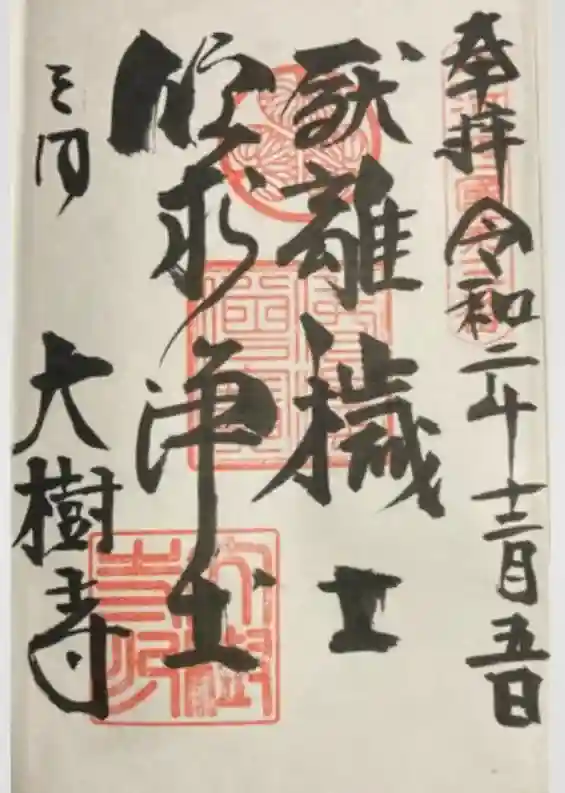 奉拝 令和二年十二月五日
厭離穢土
欣求浄土
三河 大樹寺
大樹寺印